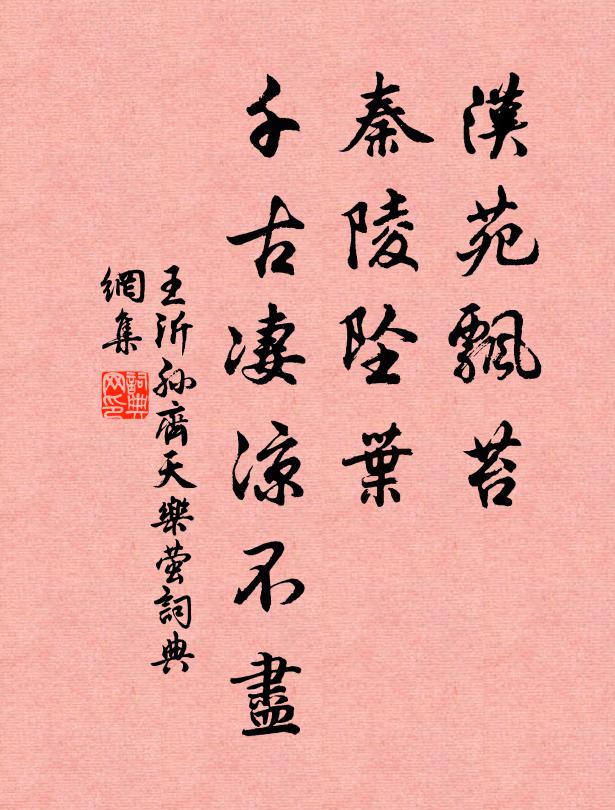 漢苑飄苔
秦陵墜葉
千古凄涼不盡
王沂孫齊天樂螢詞典
網集
詞典網印